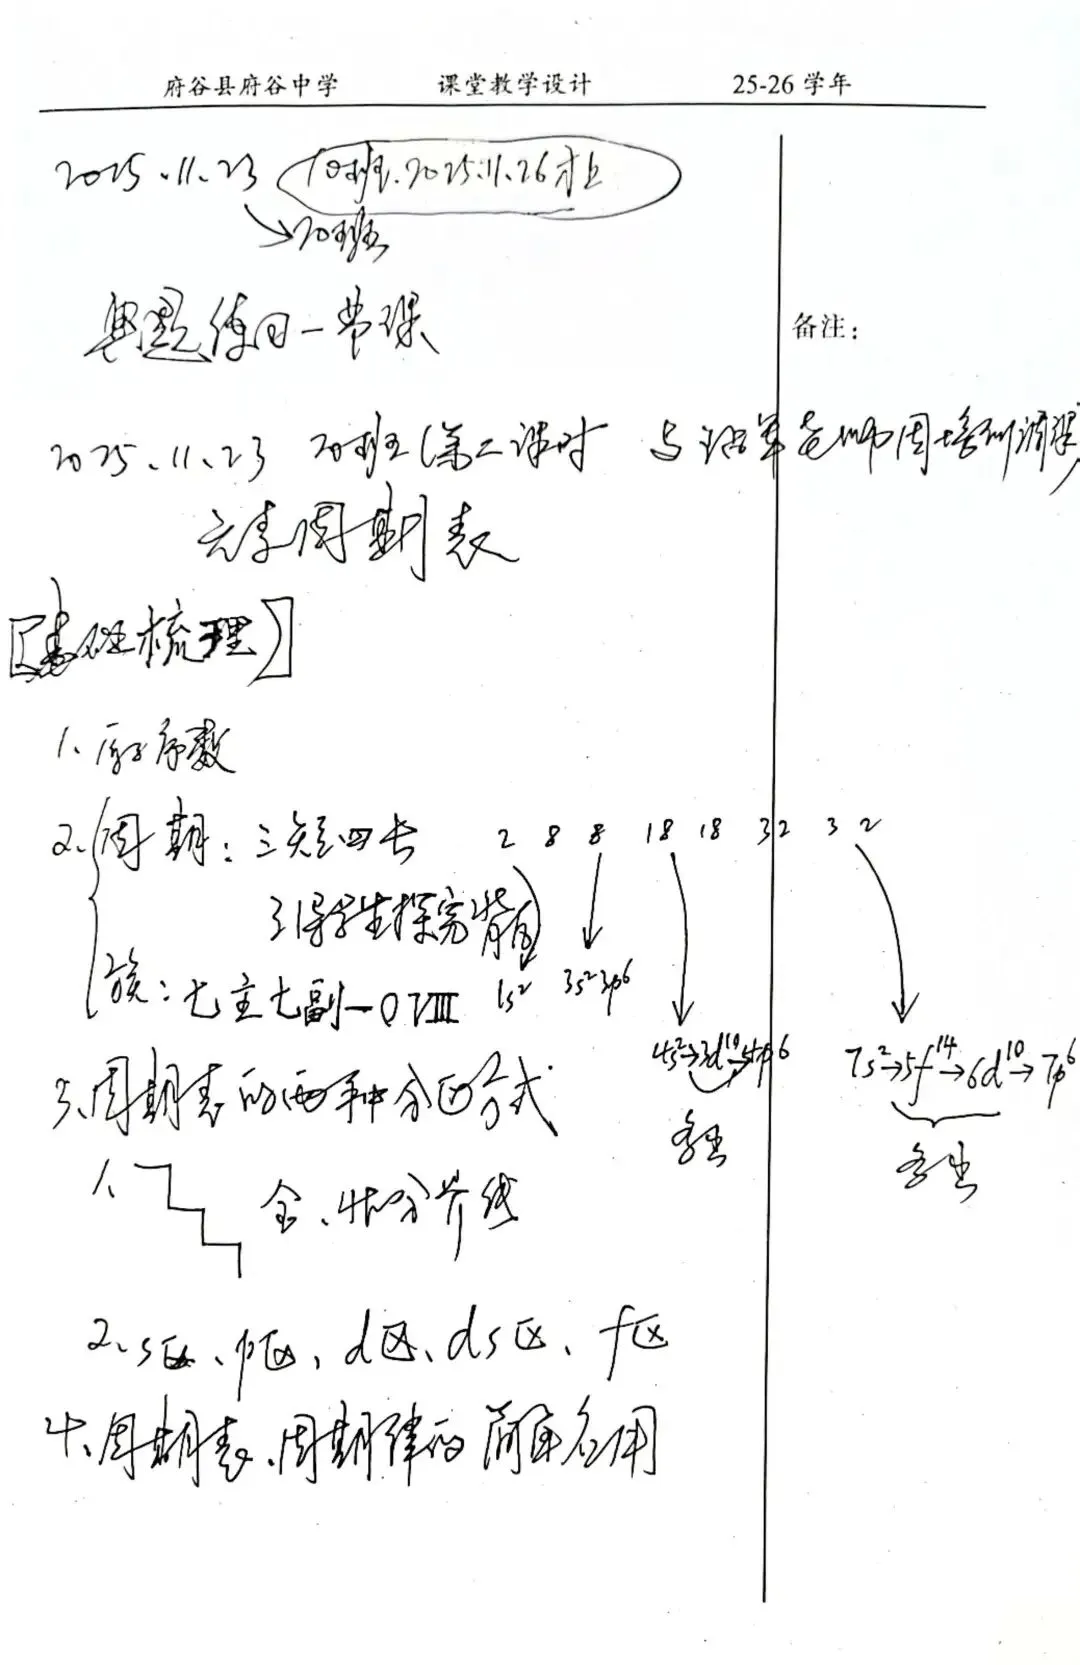 府谷县府谷中学 课堂教学设计 25-26 学年
2025.11.23 10班.2025.11.26才上
→20班
典题练习一节课
备注：
2025.11.23 20班(第二课时 与 老师周培训调课)
元素周期表
[基础梳理]
1、原子序数
2、周期：三短四长 2 8 8 18 18 32 32
引导学生探究背后
族：七主七副一0 VIII 1s² 3s²3p⁶
4s²→3d¹⁰→4p⁶ 7s²→5f¹⁴→6d¹⁰→7p⁶
3、周期表的两种分区方式
1、 金、非分界线
2、s区、p区、d区、ds区、f区
4、周期表、周期律的简单应用